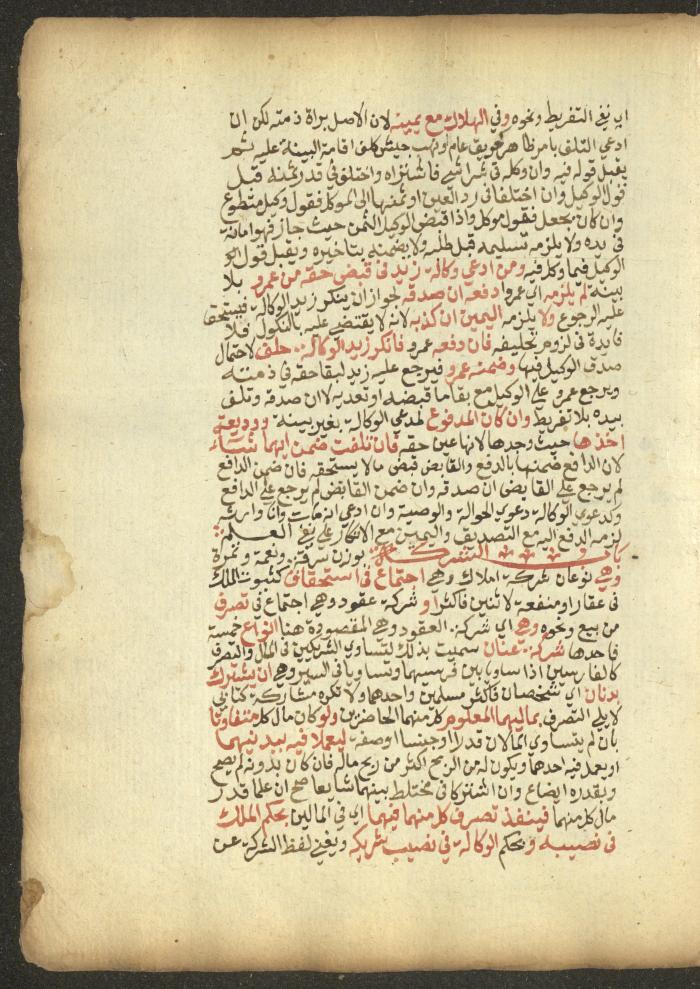 اي نفي التفريط ونحوه وفي الهلاك مع يمينه لان الاصل براة ذمته لكن ان
ادعي التلف بامر ظاهر كحريق عام ونهب جيش كلف اقامة البينة عليه ثم
يقبل قوله فيه وان وكله في شراشي فاشتراه واختلفا في قدر ثمنه قبل
قول الوكيل وان اختلفا في رد العين او ثمنها الي الموكل فقول وكيل متطوع
وان كان بجعل فقول موكل واذا قبض الوكيل الثمن حيث جاز فهو امانة
في يده ولا يلزمه تسليمه قبل طلبه ولا يضمنه بتاخيره ويقبل قول
الوكيل فيما وكل فيه ومن ادعي وكالة زيد في قبض حقه من عمرو بلا
بينة لم يلزمه اي عمروا دفعه ان صدقه لجواز ان ينكر زيد الوكالة فيستحق
عليه الرجوع ولا يلزمه اليمين ان كذبه لانه لا يقتضي عليه بالنكول فلا
فايدة في لزوم تحليفه فان دفعه عمرو فانكر زيد الوكالة حلف لاحتمال
صدق الوكيل فيها وضمنه عمرو فيرجع عليه زيد لبقا حقه في ذمته
ويرجع عمرو علي الوكيل مع بقا ما قبضه او تعديه لا ان صدقه وتلف
بيده بلا تفريط وان كان المدفوع لمدعي الوكالة بغير بينة وديعة
اخذها حيث وجدها لانها عين حقه فان تلفت ضمن ايهما شاء
لان الدافع ضمنها بالدفع والقابض قبض مالا يستحقه فان ضمن الدافع
لم يرجع علي القابض ان صدقه وان ضمن القابض لم يرجع علي الدافع
وكدعوي الوكالة دعوي الحوالة والوصية وان ادعي انه مات وانا وارثه
لزمه الدفع اليه مع التصديق واليمين مع الانكار علي نفي العلم
باب الشركة بوزن سرقة ونعمة وثمرة
وهي نوعان شركة املاك وهي اجتماع في استحقاق كثبوت الملك
في عقار او منفعة لاثنين فاكثر او شركة عقود وهي اجتماع في تصرف
من بيع ونحوه وهي اي شركة العقود وهي المقصودة هنا انواع خمسة
فاحدها شركة عنان سميت بذلك لتساوي الشريكين في المال والتصرف
كالفارسين اذا ساويا بين فرسيهما وتساويا في السير وهي ان يشترك
بدنان اي شخصان فاكثر مسلمين واحدهما ولا تكره مشاركة كتابي
لا يلي التصرف بماليهما المعلوم كل منهما الحاضرين ولو كان مال كل متفاوتا
بان لم يتساوي المالان قدرا او جنسا او صفة ليعملا فيه ببدنيهما
او يعمل فيه احدهما ويكون له من الربح اكثر من ربح ماله فان كان بدونه لم يصح
وبقدره ابضاع وان اشتركا في مختلط بينهما شايعا صح ان علما قدر
مال كل منهما فينفذ تصرف كل منهما فيهما اي في المالين بحكم الملك
في نصيبه وبحكم الوكالة في نصيب شريكه ويغني لفظ الشركة عن